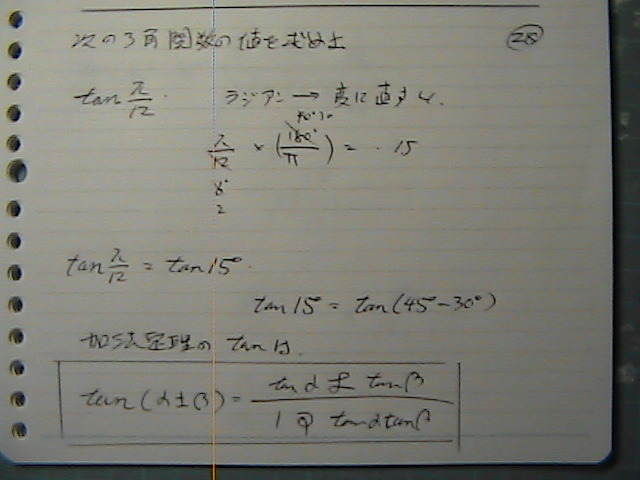 次の3角関数の値を求め土 28
tan π/12. ラジアン → 度に直すと.
π/12 × (180°/π) = . 15
6
2
tan π/12 = tan 15°.
tan 15° = tan(45° - 30°)
加法定理の tan は.
tan(α±β) = (tan α ± tan β)/(1 ∓ tanαtanβ)